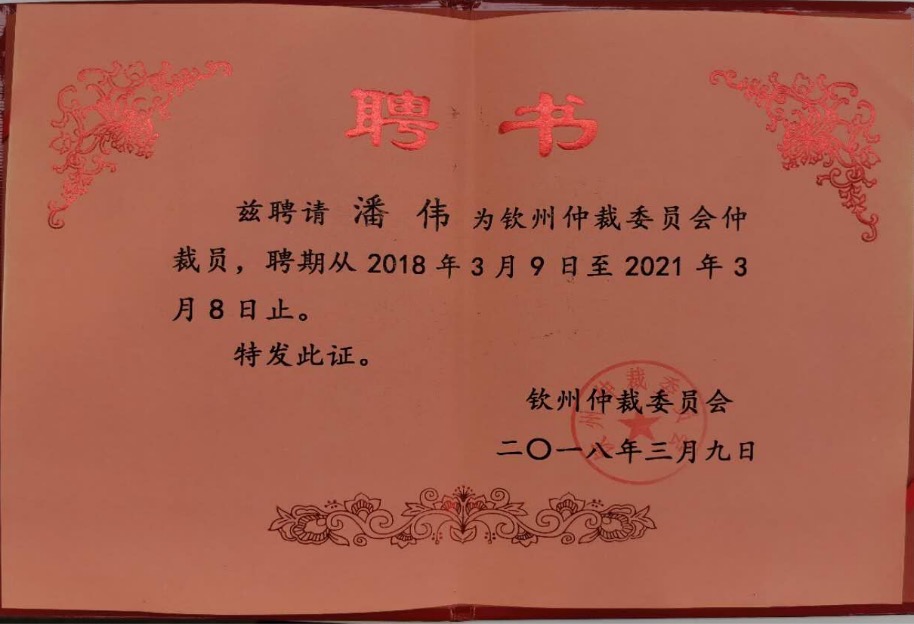 聘书
兹聘请潘伟为钦州仲裁委员会仲
裁员，聘期从2018年3月9日至2021年3
月8日止。
特发此证。
钦州仲裁委员会
二〇一八年三月九日